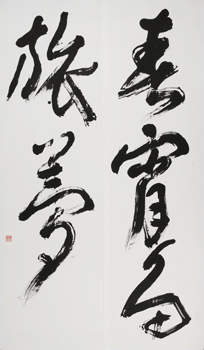 春宵旬
旅夢